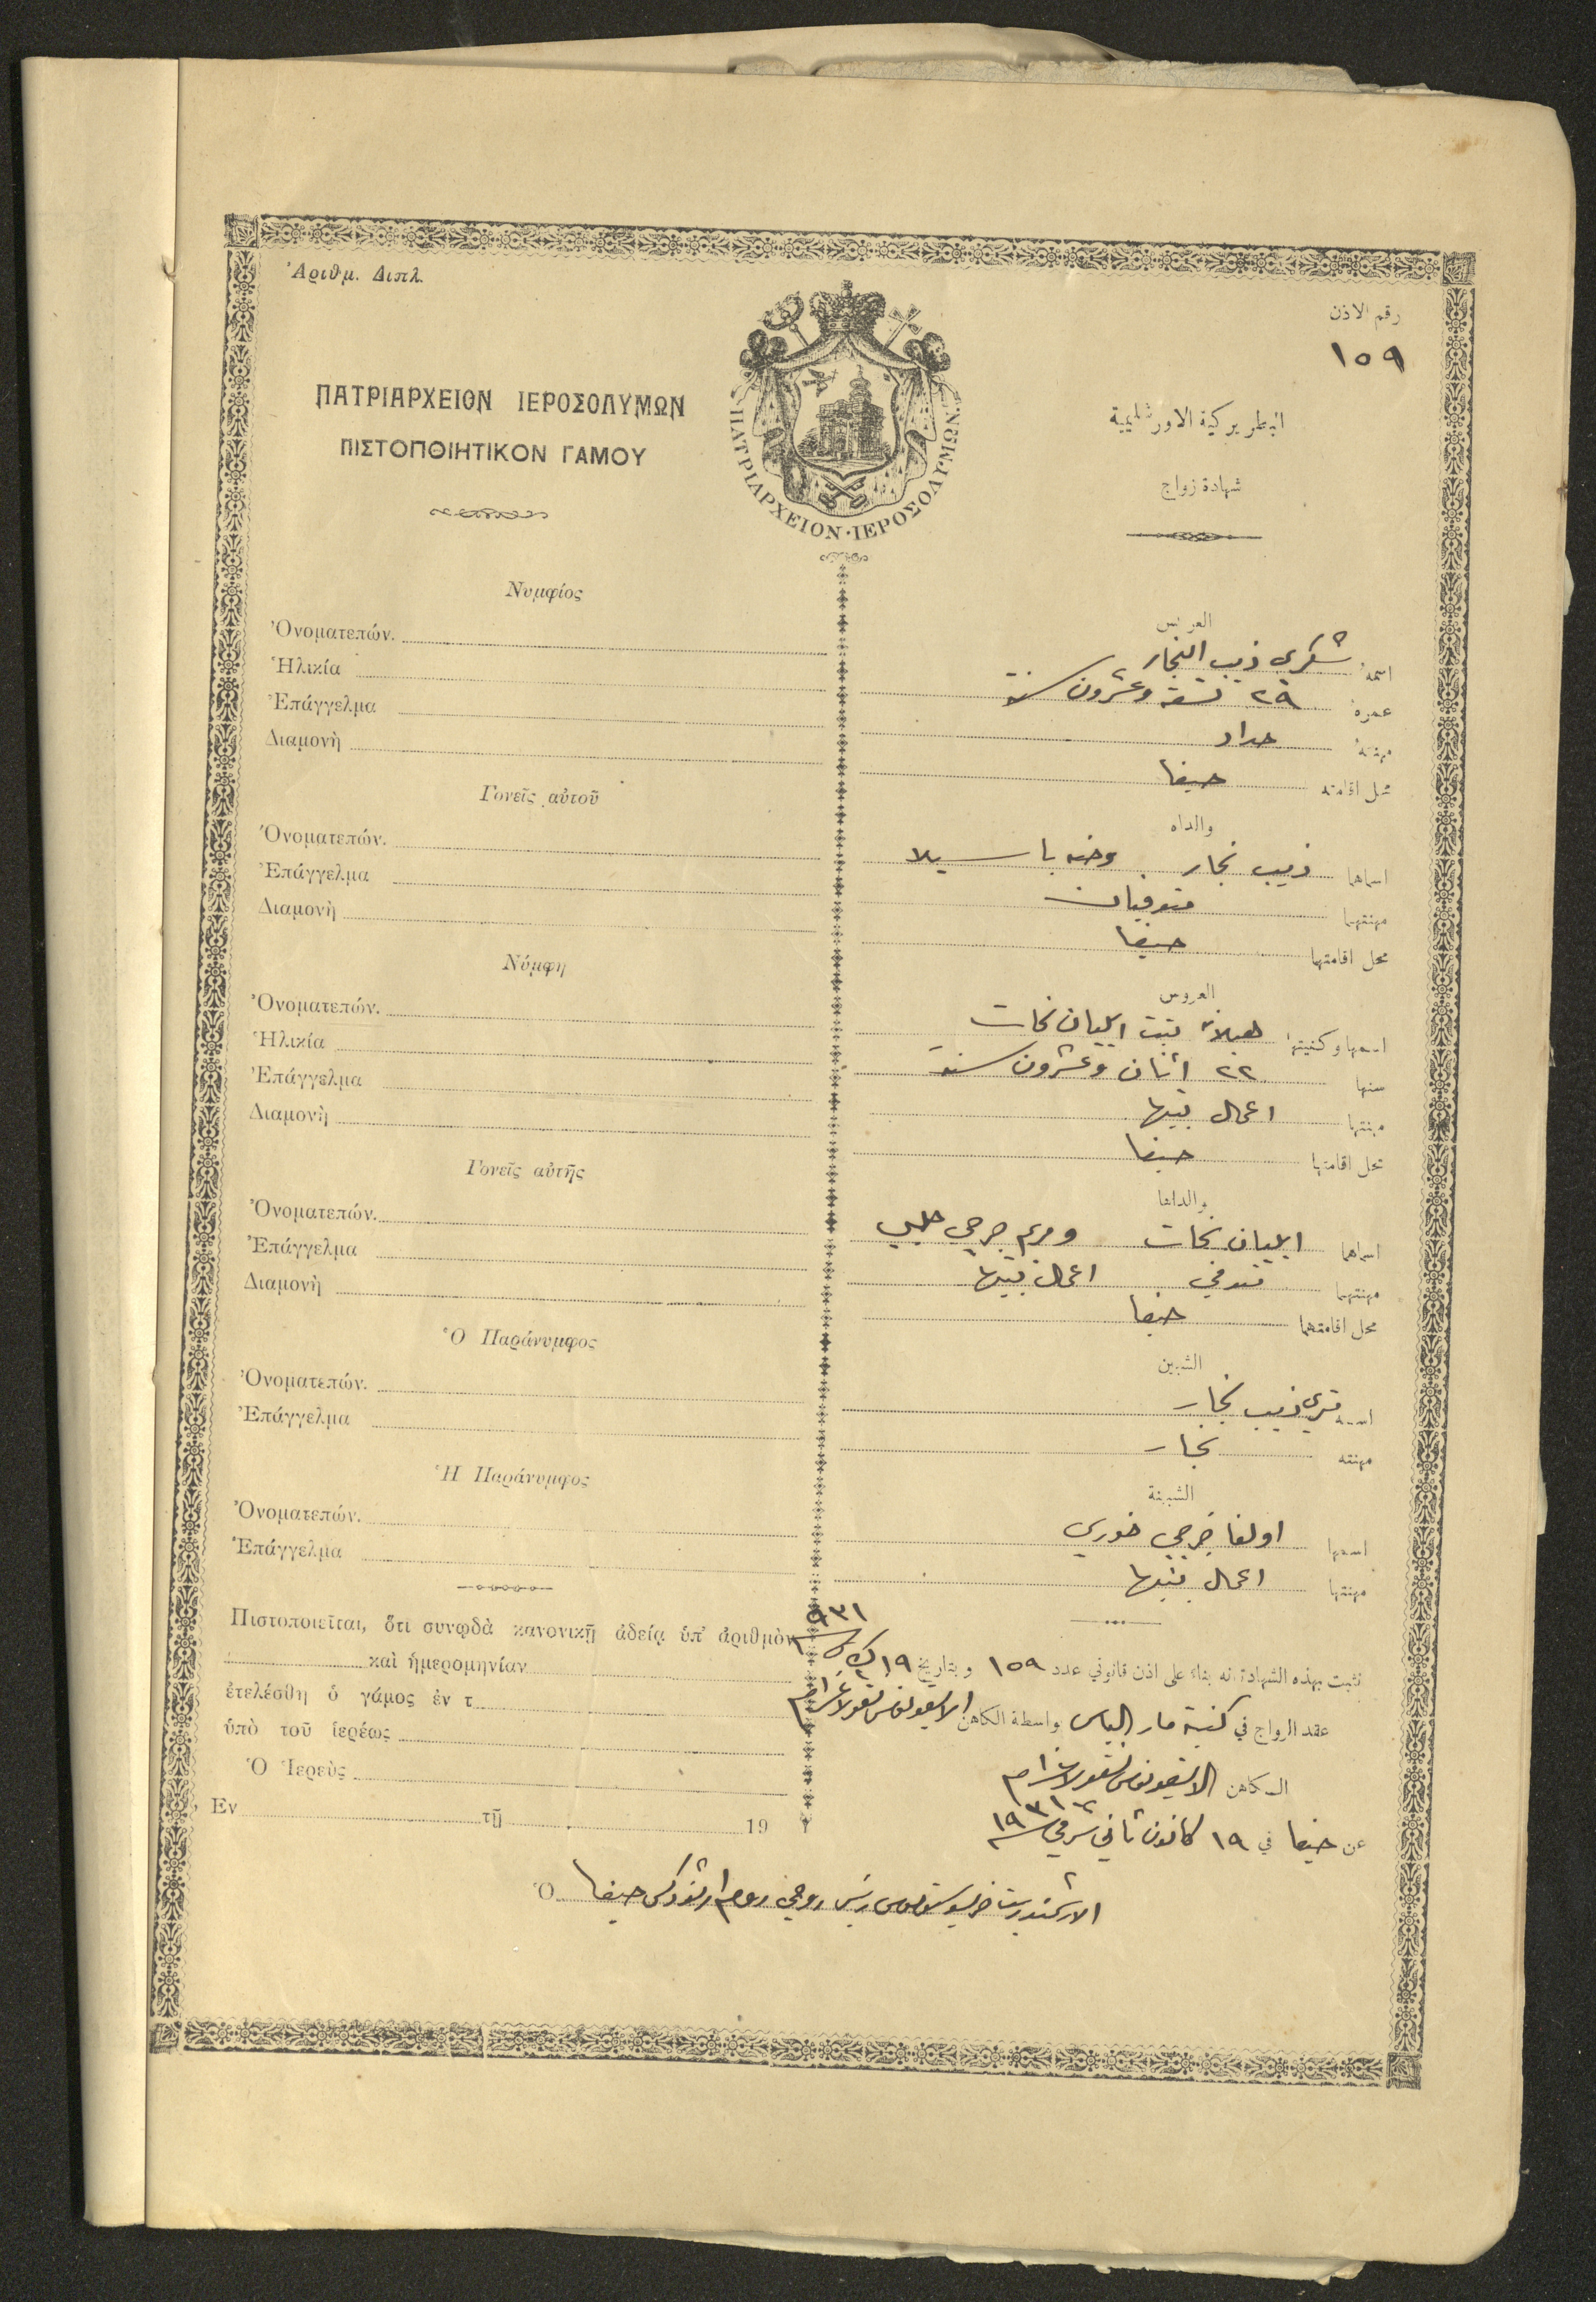 Ἀριθμ. Διπλ.
رقم الاذن
١٥٩
ΠΑΤΡΙΑΡΧΕΙΟΝ ΙΕΡΟΣΟΛΥΜΩΝ
ΠΙΣΤΟΠΟΙΗΤΙΚΟΝ ΓΑΜΟΥ
ΠΑΤΡΙΑΡΧΕΙΟΝ·ΙΕΡΟΣΟΛΥΜΩΝ
البطريركية الاورشليمية
شهادة زواج
Νυμφίος
Ὀνοματεπών.
Ἡλικία
Ἐπάγγελμα
Διαμονὴ
Γονεῖς αὐτοῦ
Ὀνοματεπών.
Ἐπάγγελμα
Διαμονὴ
Νύμφη
Ὀνοματεπών.
Ἡλικία
Ἐπάγγελμα
Διαμονὴ
Γονεῖς αὐτῆς
Ὀνοματεπών.
Ἐπάγγελμα
Διαμονὴ
Ὁ Παράνυμφος
Ὀνοματεπών.
Ἐπάγγελμα
Ἡ Παράνυμφος
Ὀνοματεπών.
Ἐπάγγελμα
Πιστοποιεῖται, ὅτι συνῳδὰ κανονικῇ ἀδείᾳ ὑπ' ἀριθμὸν
καὶ ἡμερομηνίαν
ἐτελέσθη ὁ γάμος ἐν τ
ὑπὸ τοῦ ἱερέως
Ὁ Ἱερεὺς
Ἐν τῇ 19
العريس
اسمه شكري ذيب النجار
عمره ٢٩ تسعة وعشرون سنة
مهنته حداد
محل اقامته حيفا
والداه
اسماهما ذيب نجار وحنه باسيلا
مهنتهما متوفيان
محل اقامتهما حيفا
العروس
اسمها وكنيتها هيلانه بنت ايليان نحات
سنها ٢٢ اثنان وعشرون سنة
مهنتها اعمال بيتها
محل اقامتها حيفا
والداها
اسماهما ايليان نحات ومريم جرجي حلبي
مهنتهما متوفي اعمال بيتها
محل اقامتهما حيفا
الشبين
اسمه ذيب نجار
مهنته نجار
الشبينة
اسمها اولغا جرجي خوري
مهنتها اعمال بيتها
نثبت بهذه الشهادة انه بناء على اذن قانوني عدد ١٥٩ و بتاريخ ١٩ ك٢ ٩٣١
عقد الزواج في كنيسة مار الياس بواسطة الكاهن الايقونوموس نقولا
الكاهن الايقونوموس نقولا
عن حيفا في ١٩ كانون ثاني شرقي سنة ١٩٣١
Ὁ الارشمندريت رئيس روحي روم ارثوذكس حيفا